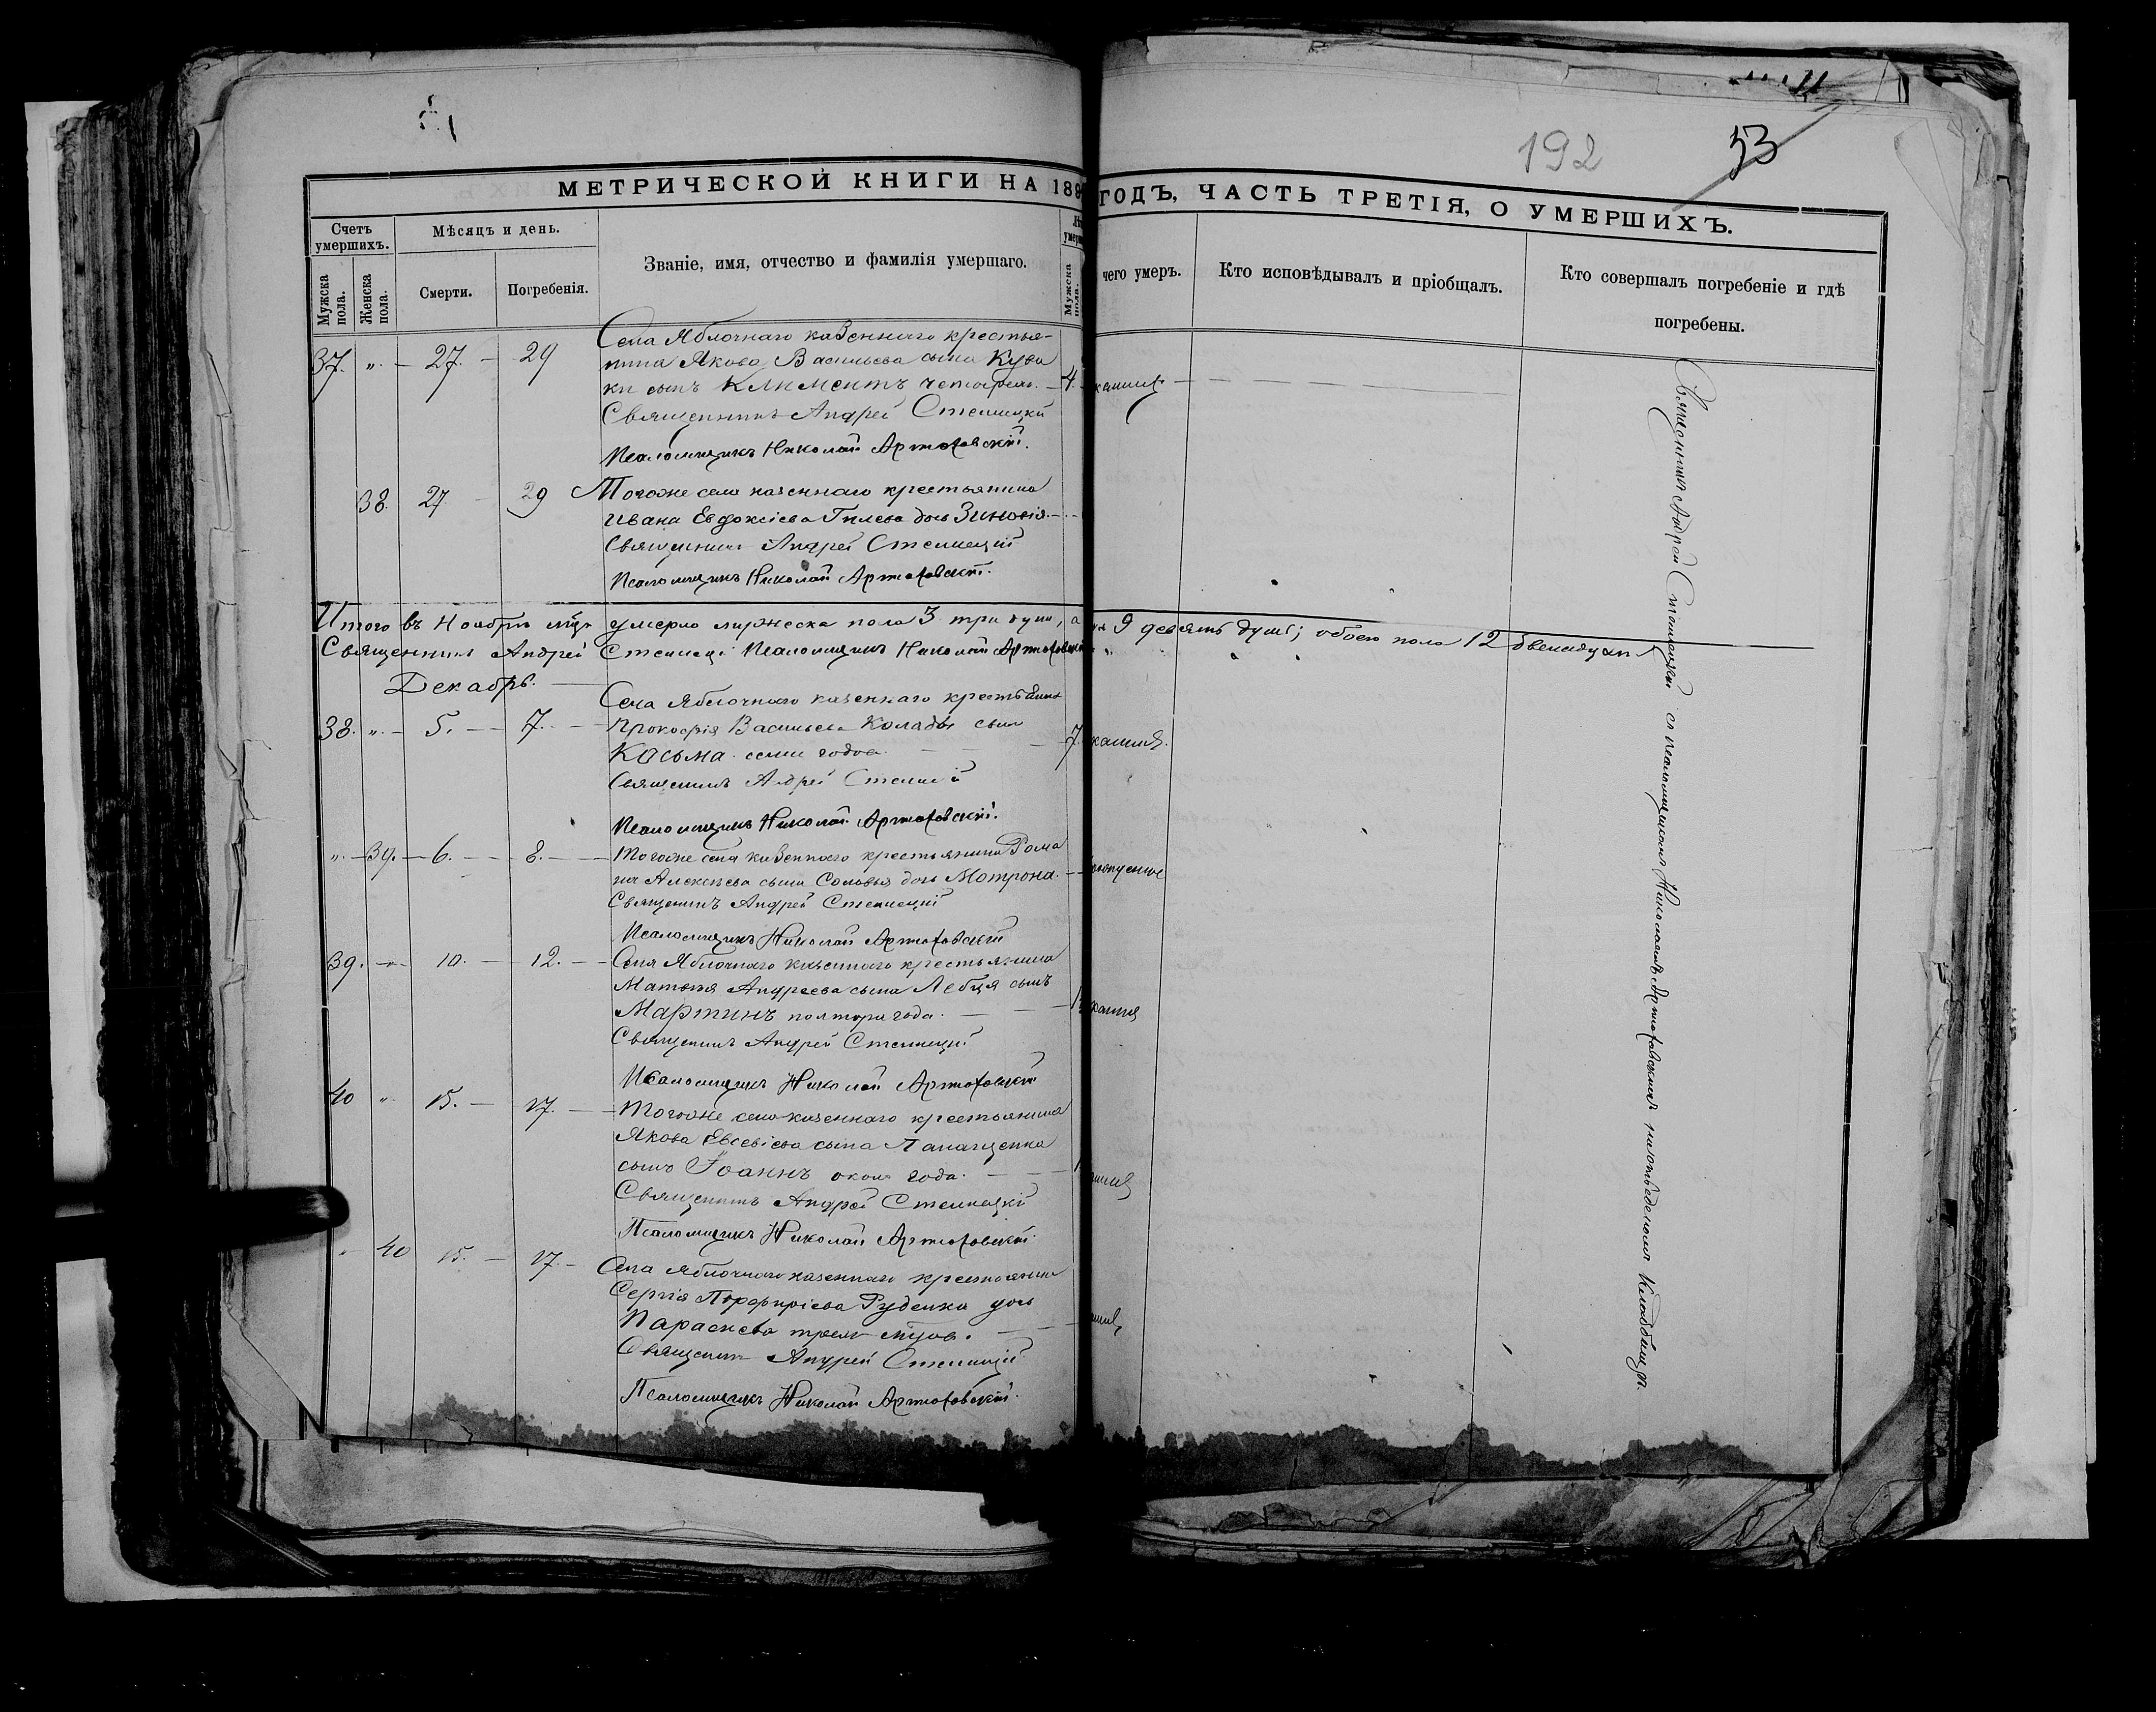 192
53
МЕТРИЧЕСКОЙ КНИГИ НА 18
ГОДЪ, ЧАСТЬ ТРЕТІЯ, О УМЕРШИХЪ.
Счетъ умершихъ.
Мужска пола.
Женска пола.
Мѣсяцъ и день.
Смерти.
Погребенія.
Званіе, имя, отчество и фамилія умершаго.
Мужска пола.
чего умеръ.
Кто исповѣдывалъ и пріобщалъ.
Кто совершалъ погребеніе и гдѣ
погребены.
Села Яблочнаго казеннаго крестья-
37. „ — 27. — 29 нина Якова Васильева сына
сынъ Климентъ — 4.
Священникъ Андрей
Псаломщикъ Николай Артюховскій.
38. 27 — 29 Тогоже села казеннаго крестьянина
Ивана Евдокіева дочь Зиновія
Священникъ Андрей
Псаломщикъ Николай Артюховскій.
Итого въ Ноябрѣ умерло мужеска пола 3 три души, а 9 девять душъ; обоего пола 12 двенадцать
Священникъ Андрей Псаломщикъ Николай
Декабрь.
Села Яблочнаго казеннаго крестьянина
38. „ — 5. — 7. — Прокофія Васильева Коляды сынъ
Косьма семи годовъ — 7. кашля.
Священникъ Андрей
Псаломщикъ Николай Артюховскій.
„ — 39. — 6. — 8. — Тогоже села казеннаго крестьянина Рома
на Алексѣева сына Соловья дочь Мотрона.
Священникъ Андрей
Псаломщикъ Николай Артюховскій
39. — 10. — 12. — Села Яблочнаго казеннаго крестьянина
Андреева сына Лебедя сынъ
Мартинъ полтора года. — кашля
Священникъ Андрей
Псаломщикъ Николай Артюховскій
40 „ 15. — 17. — Тогоже села казеннаго крестьянина
Якова Евсевіева сына
сынъ Іоаннъ около года.
Священникъ Андрей
Псаломщикъ Николай Артюховскій.
40 15. — 17. — Села Яблочнаго казеннаго крестьянина
Сергія Порфиріева Руденка дочь
Параскева трехъ
Священникъ Андрей
Псаломщикъ Николай Артюховскій.
Священникъ Андрей съ псаломщикомъ Николаемъ Артюховскимъ на кладбищѣ.